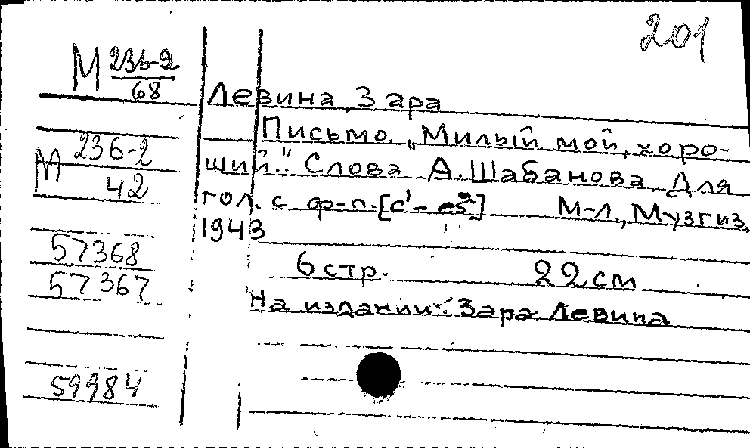 201
М 236-2
68
Левина, Зара
Письмо. „Милый мой, хоро-
М 236-2
42
ший." Слова А. Шабанова. Для
гол. с ф-п. [c¹-es²] М-Л., Музгиз,
1943
57368
6 стр. 22 см
57367
На издании: Зара Левина
59984